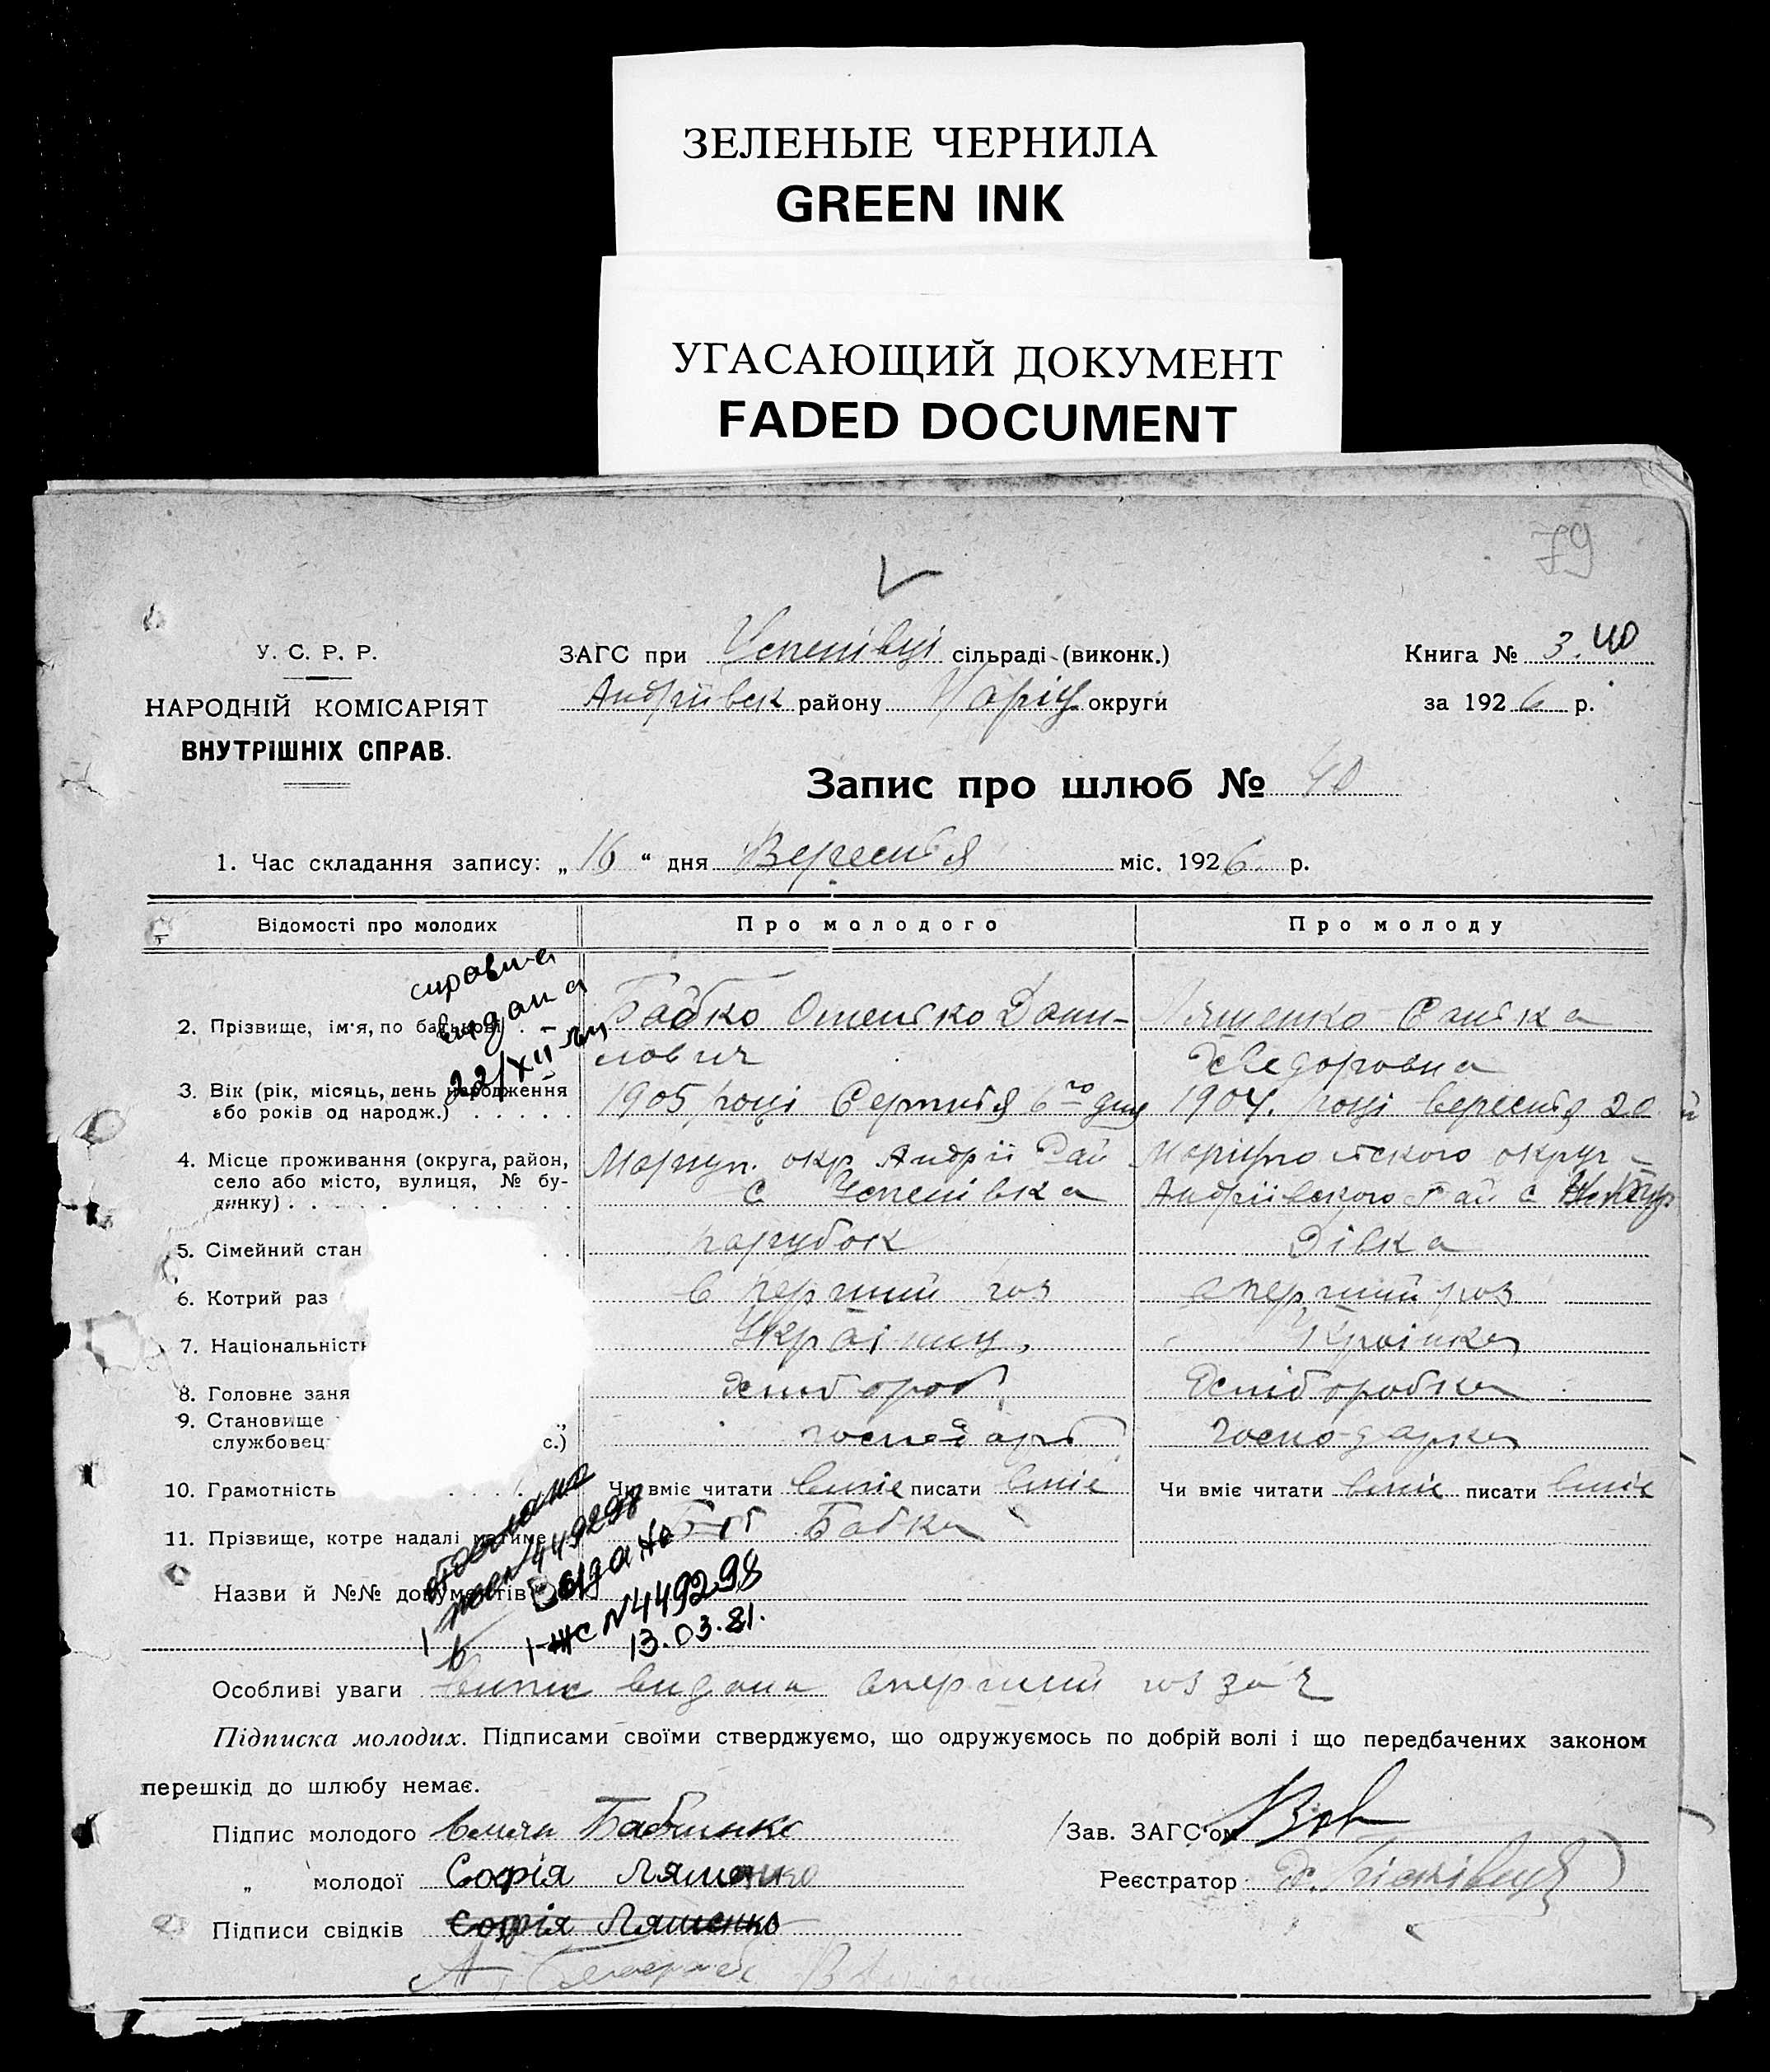 ЗЕЛЕНЫЕ ЧЕРНИЛА
GREEN INK
УГАСАЮЩИЙ ДОКУМЕНТ
FADED DOCUMENT
79
У. С. Р. Р.
НАРОДНІЙ КОМІСАРІЯТ
ВНУТРІШНІХ СПРАВ.
ЗАГС при Успенівці сільраді (виконк.)
Андріївск району Маріуп округи
Книга № 3. 40
за 1926 р.
Запис про шлюб № 40
1. Час складання запису: „16“ дня Вересня міс. 1926 р.
Відомості про молодих Про молодого Про молоду
справка
видана
22/XII
2. Прізвище, ім'я, по батькові Бабко Омелько Дани- Ляшенко Санька
лович Хведоровна
3. Вік (рік, місяць, день народження 1905 році Серпня 6го дня 1904. році вересня 20
або років од народж.)
4. Місце проживання (округа, район, Мариуп. окр Андрії Рай Маріупольского округ
село або місто, вулиця, № бу- с Успенівка Андріівского Рай с
динку)
5. Сімейний стан парубок Дівка
6. Котрий раз в перший раз вперший раз
7. Національність Украінец Украінка
8. Головне заня хлібороб хліборобка
9. Становище господарь господарка
службовец с.)
10. Грамотність Чи вміє читати вміє писати вміє Чи вміє читати вміє писати вміє
11. Прізвище, котре надалі матиме Бабка
Назви й №№ документів
449298
Выдано
I-ЖС N449298
13.03.81.
Особливі уваги видана вперший раз
Підписка молодих. Підписами своїми стверджуємо, що одружуємось по добрій волі і що передбачених законом
перешкід до шлюбу немає.
Підпис молодого
„ молодої Софія Ляшенко
Підписи свідків Софія Ляшенко
Зав. ЗАГС'ом
Реєстратор